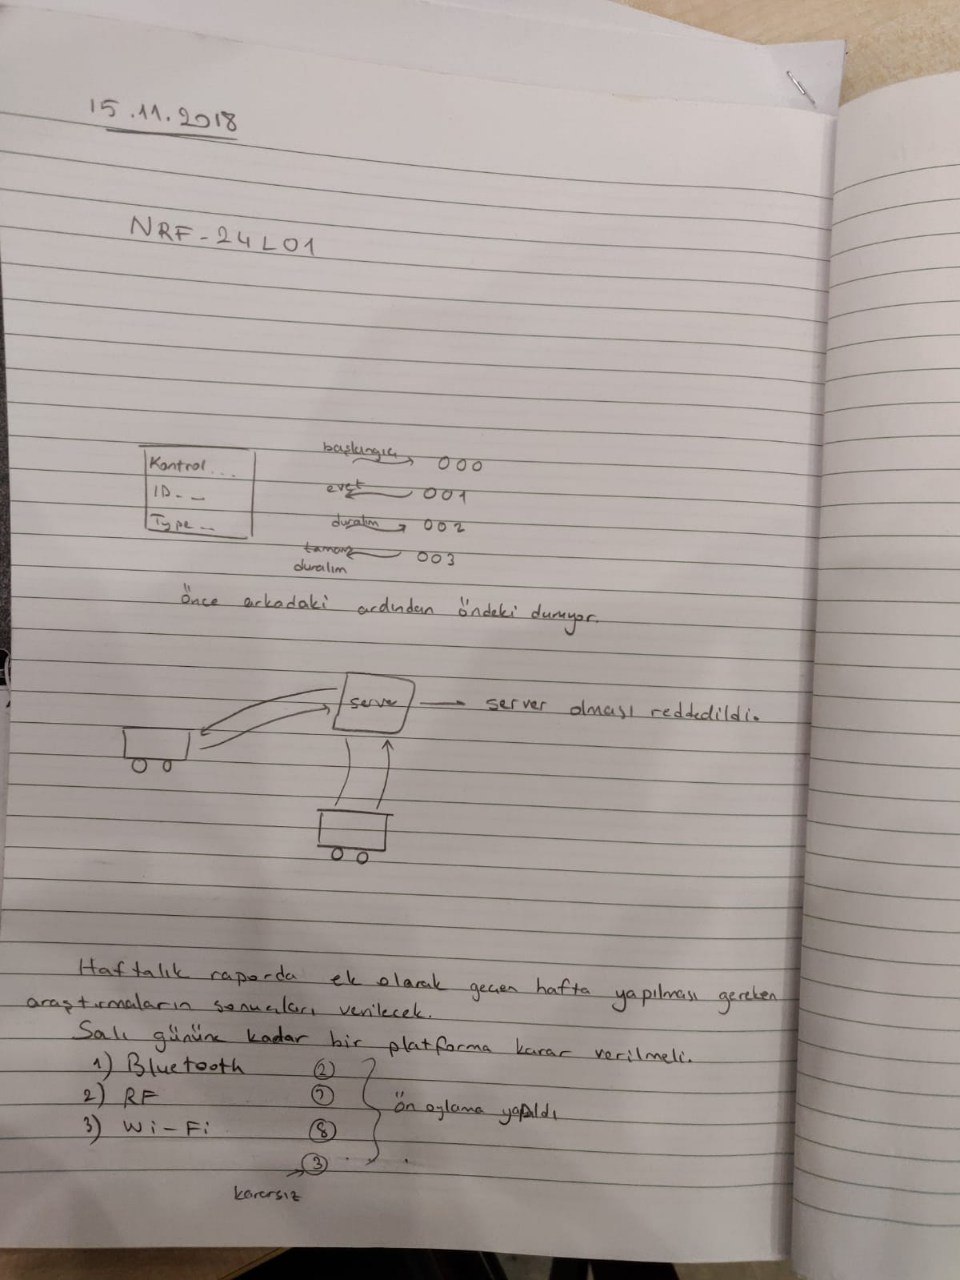 15.11.2018
NRF-24L01
Kontrol...
ID- _
Type _
başlangıç 000
evet 001
duralım 002
tamam 003
duralım
önce arkadaki ardından öndeki duruyor.
server
server olması reddedildi.
Haftalık raporda ek olarak geçen hafta yapılması gereken
araştırmaların sonuçları verilecek.
Salı gününe kadar bir platforma karar verilmeli.
1) Bluetooth 2
2) RF 7
3) Wi-Fi 8
ön oylama yapıldı
3
kararsız